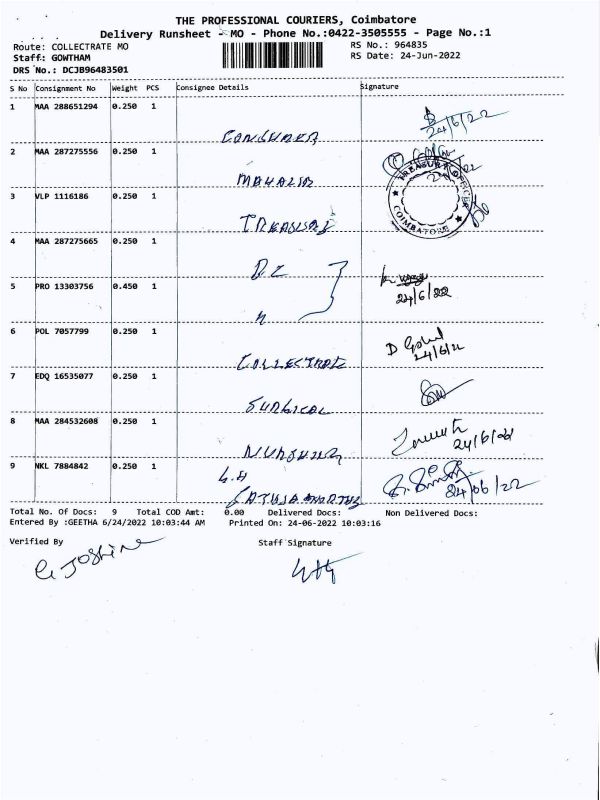 THE PROFESSIONAL COURIERS, Coimbatore
Delivery Runsheet - MO - Phone No.:0422-3505555 - Page No.:1
Route: COLLECTRATE MO
RS No.: 964835
Staff: GOWTHAM
RS Date: 24-Jun-2022
DRS No.: DCJB96483501
S No Consignment No Weight PCS Consignee Details Signature
1 MAA 288651294 0.250 1
CONSUMER 24/6/22
2 MAA 287275556 0.250 1
MAHALIR
TREASURY OFFICER
COIMBATORE
3 VLP 1116186 0.250 1
TREASURY
4 MAA 287275665 0.250 1
5 PRO 13303756 0.450 1
24/6/22
6 POL 7057799 0.250 1
COLLECTRATE
24/6/22
7 EDQ 16535077 0.250 1
SURGICAL
8 MAA 284532608 0.250 1
24/6/22
9 NKL 7884842 0.250 1
24/06/22
Total No. Of Docs: 9 Total COD Amt: 0.00 Delivered Docs: Non Delivered Docs:
Entered By :GEETHA 6/24/2022 10:03:44 AM Printed On: 24-06-2022 10:03:16
Verified By Staff Signature